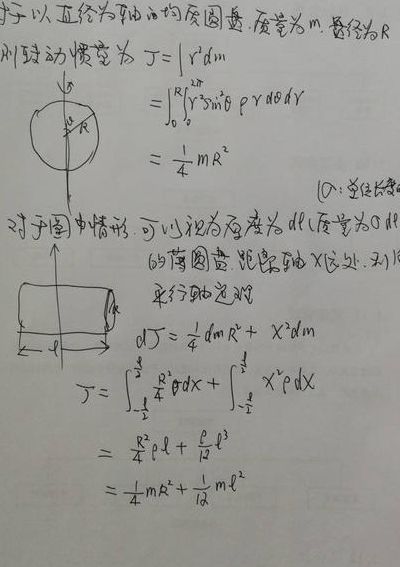 对于以直径为轴的均质圆盘.质量为m.半径为R
则转动惯量为 J=∫r²dm
=∫₀ᴿ∫₀²π r²sin²θ ρ r dθ dr
R
= 1/4 mR²
(ρ:单位长度
对于图中情形.可以视为厚度为dl(质量为ρdl
的薄圆盘.距离轴x远处.利用
平行轴定理
R
l
dJ = 1/4 dm R² + x²dm
J = ∫_{-l/2}^{l/2} R²/4 ρdx + ∫_{-l/2}^{l/2} x²ρdx
= R²/4 ρl + ρ/12 l³
= 1/4 mR² + 1/12 ml²